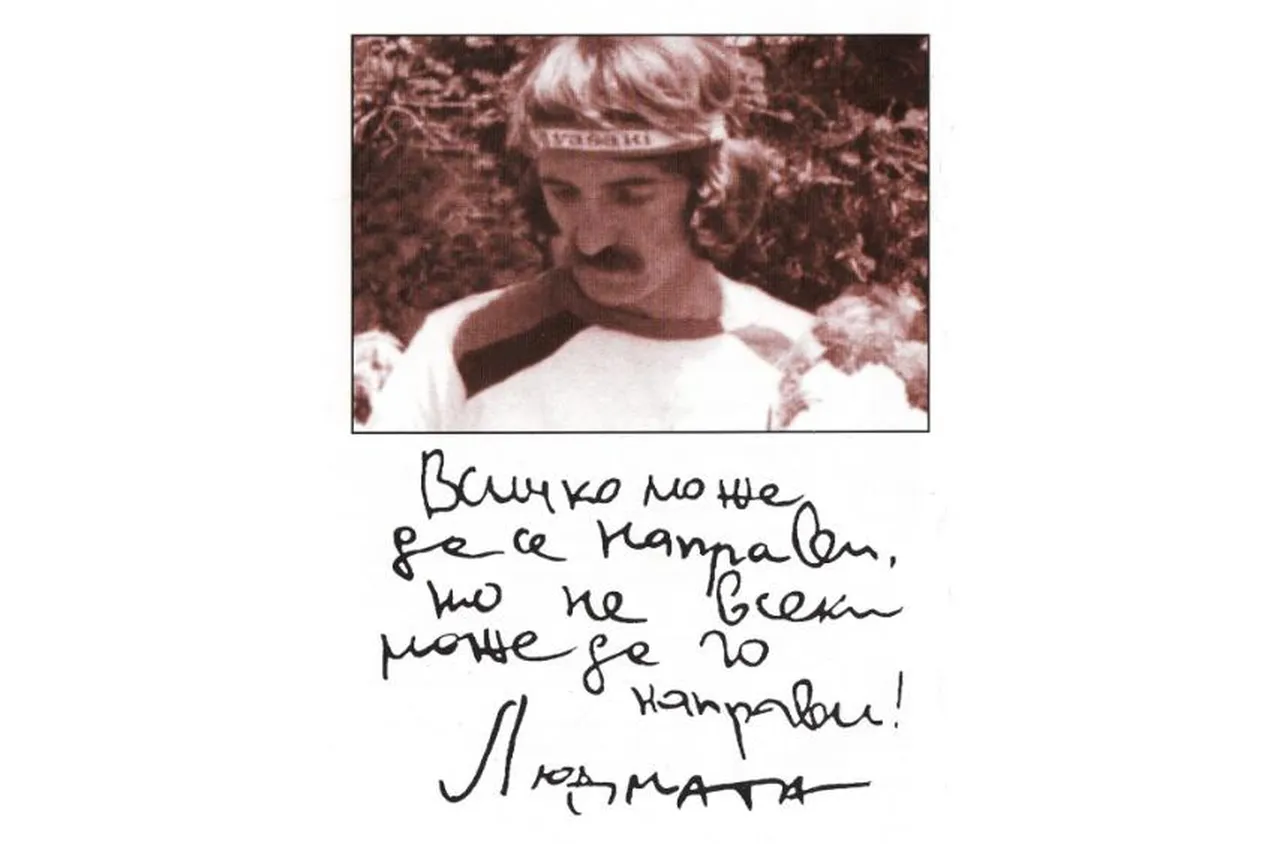 yasaki
Всичко може
да се направи,
но не всеки
може да го
направи!
Людмата